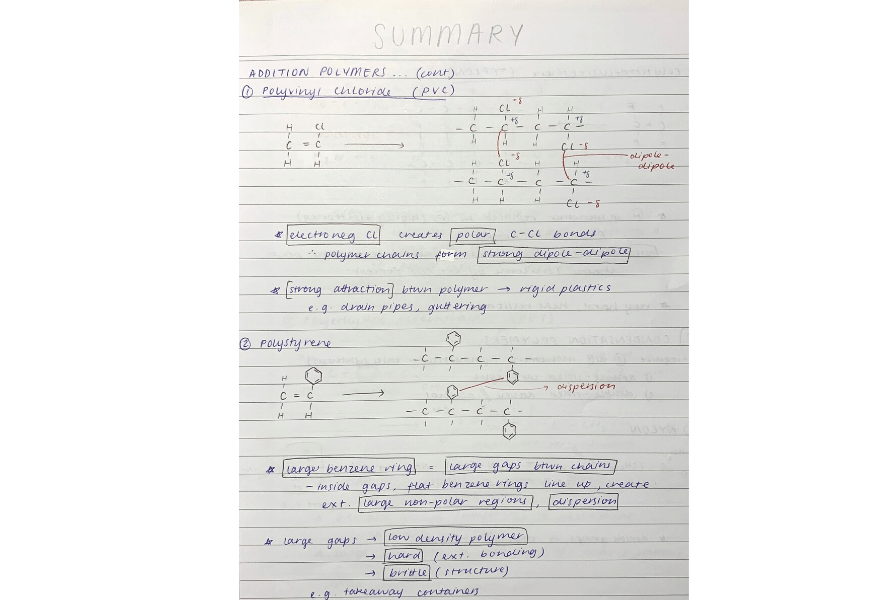 SUMMARY
ADDITION POLYMERS... (cont)
① Polyvinyl chloride (PVC)
H Cl
C = C
H H
H Cl -δ H H
- C - C +δ - C - C +δ -
H H H Cl -δ
dipole-dipole
H Cl -δ H H
- C - C +δ - C - C +δ -
H H H Cl -δ
* electroneg Cl creates polar C-Cl bonds
∴ polymer chains form strong dipole-dipole
* [strong attraction] btwn polymer → rigid plastics
e.g drain pipes, guttering
② Polystyrene
- C - C - C - C -
H
C = C
H H
dispersion
- C - C - C - C -
* large benzene ring = large gaps btwn chains
- inside gaps, flat benzene rings line up, create
ext. large non-polar regions, dispersion
* large gaps → low density polymer
→ hard (ext. bonding)
→ brittle (structure)
e.g. takeaway containers